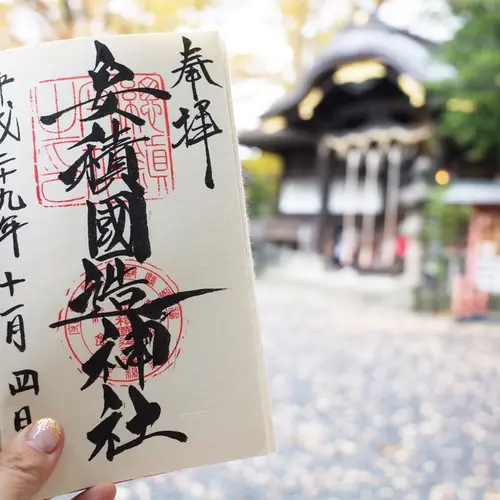 奉拝
安積國造神社
平成二十九年十一月四日